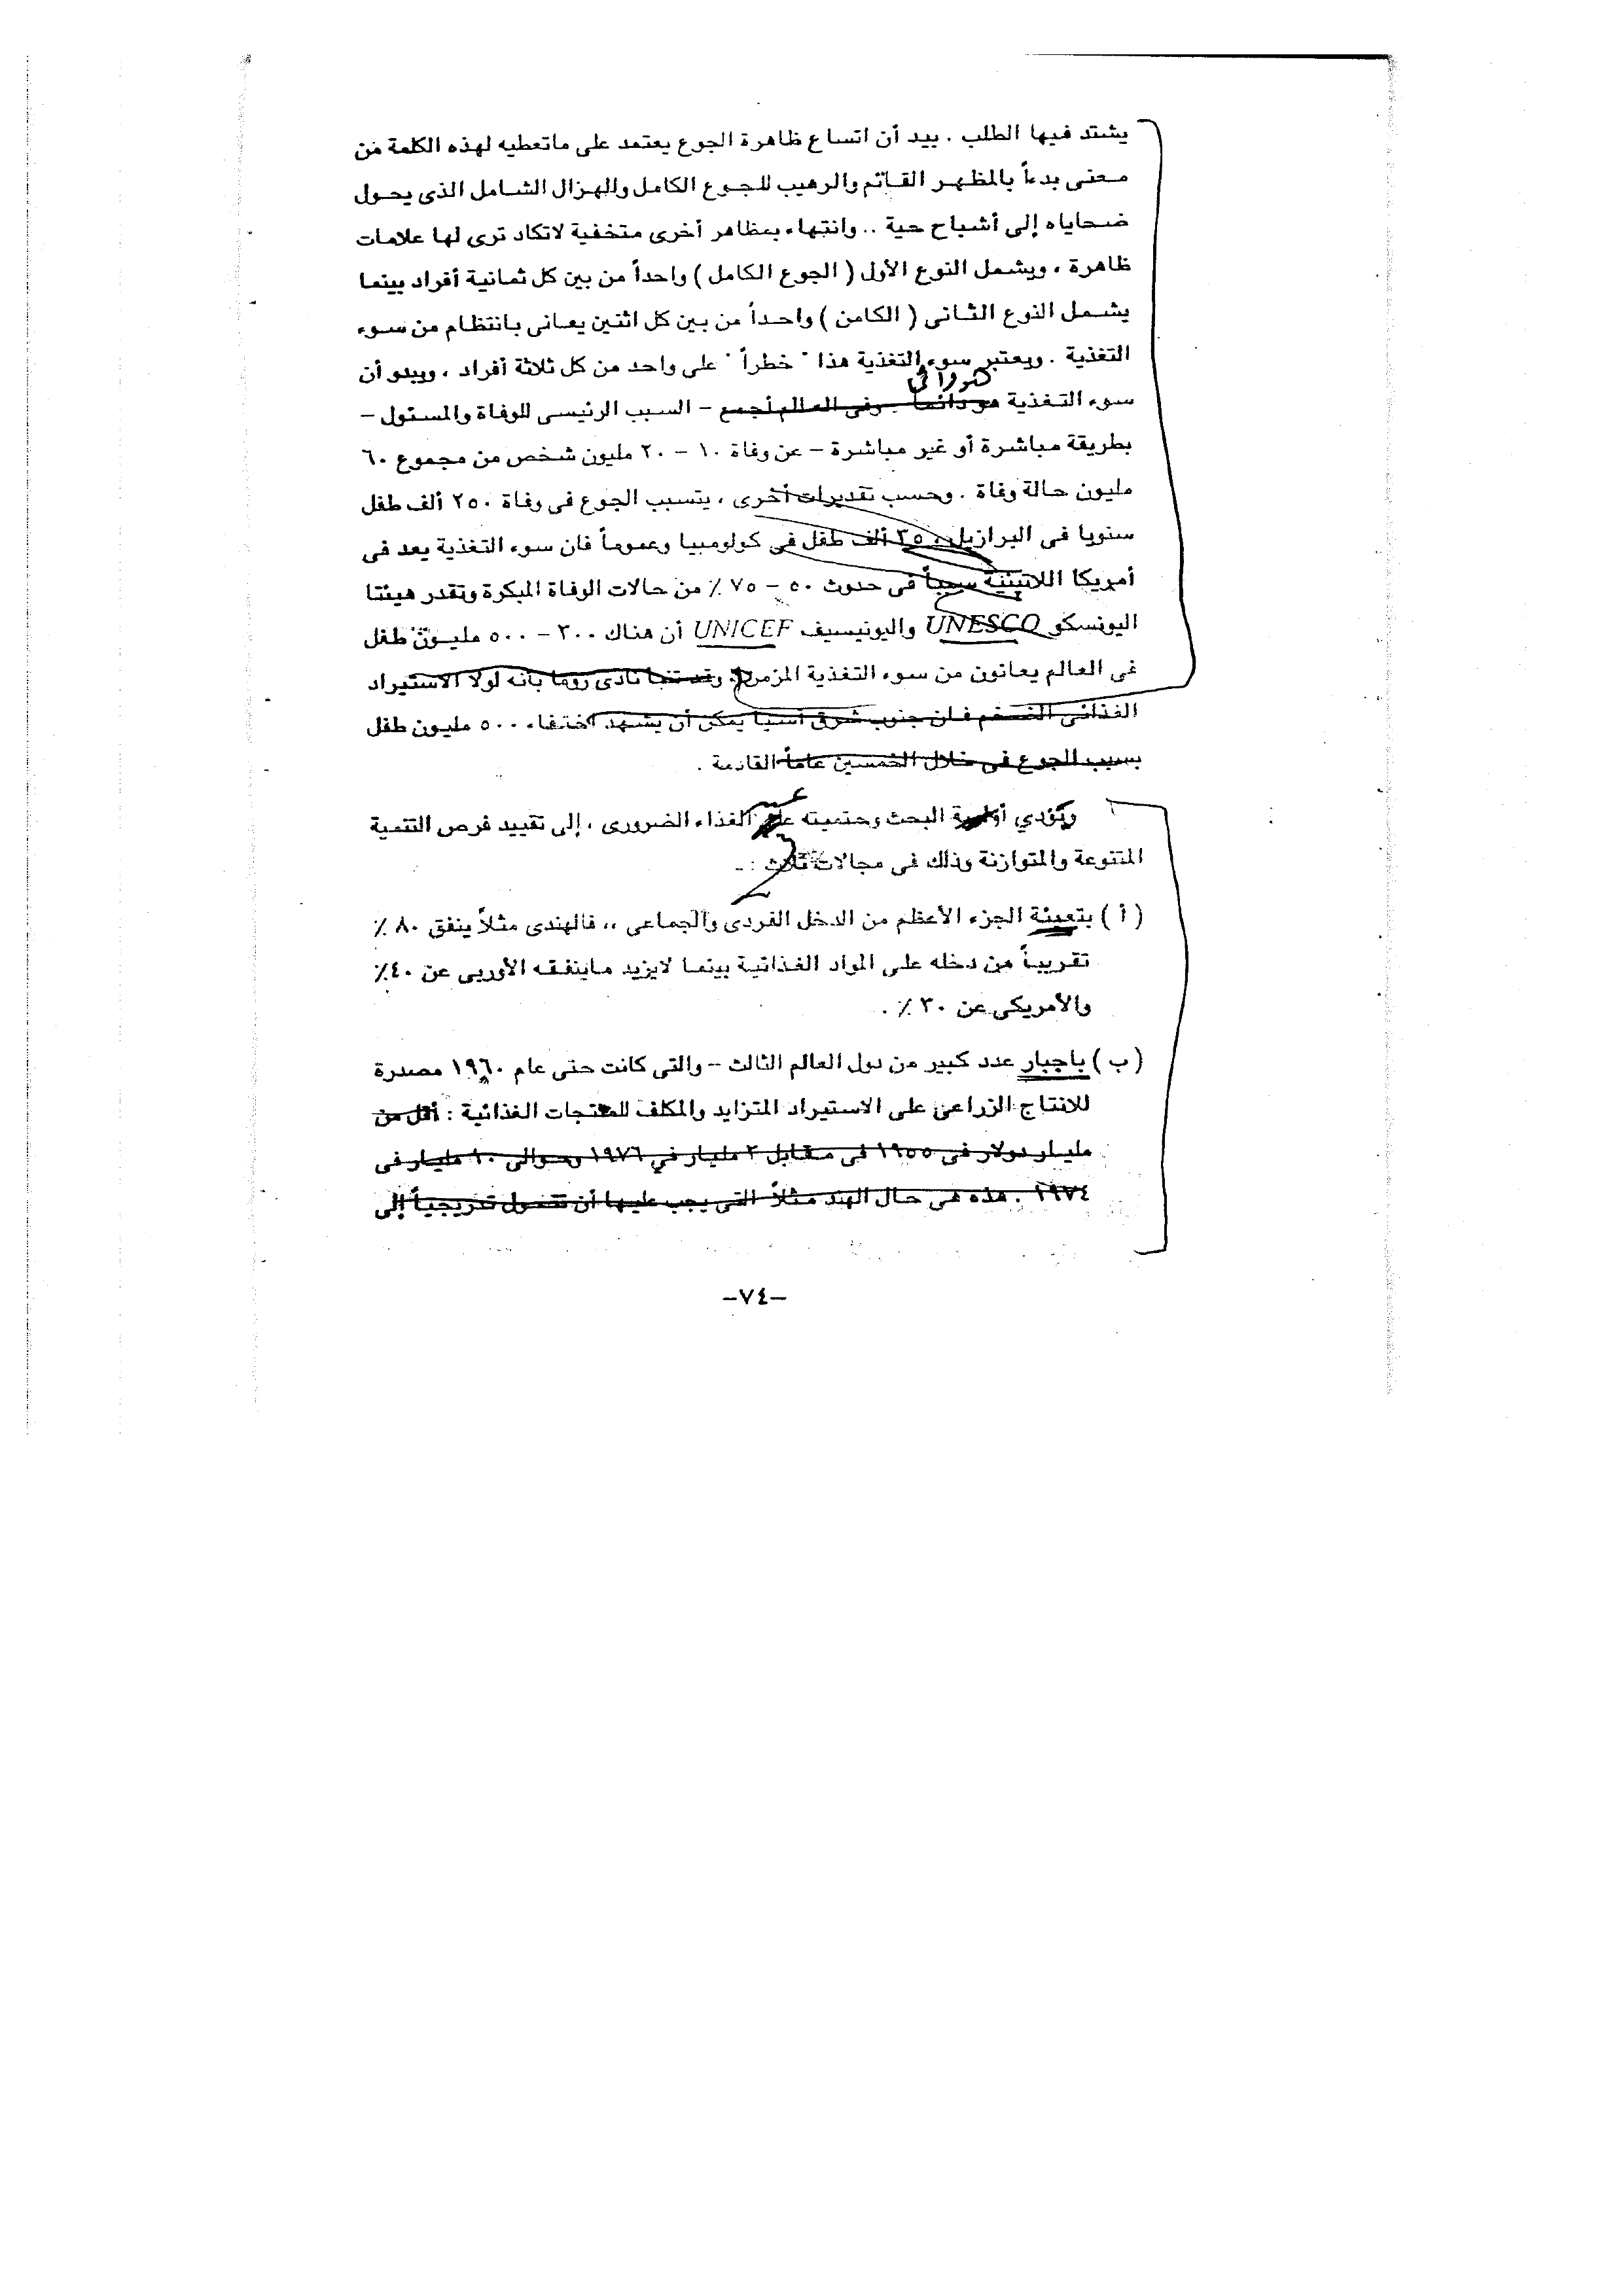 يشتد فيها الطلب . بيد أن اتساع ظاهرة الجوع يعتمد على ماتعطيه لهذه الكلمة من
معنى بدءاً بالمظهر القاتم والرهيب للجوع الكامل وللهزال الشامل الذى يحول
ضحاياه إلى أشباح حية .. وانتهاء بمظاهر أخرى متخفية لاتكاد ترى لها علامات
ظاهرة ، ويشمل النوع الأول ( الجوع الكامل ) واحداً من بين كل ثمانية أفراد بينما
يشمل النوع الثانى ( الكامن ) واحداً من بين كل اثنين يعانى بانتظام من سوء
التغذية . ويعتبر سوء التغذية هذا " خطراً " على واحد من كل ثلاثة أفراد ، ويبدو أن
سوء التغذية هو دائماً - وفى العالم أجمع - السبب الرئيسى للوفاة والمسئول -
بطريقة مباشرة أو غير مباشرة - عن وفاة ١٠ - ٢٠ مليون شخص من مجموع ٦٠
مليون حالة وفاة . وحسب تقديرات أخرى ، يتسبب الجوع فى وفاة ٢٥٠ ألف طفل
سنويا فى البرازيل ، ٣٥ ألف طفل فى كولومبيا وعموماً فان سوء التغذية يعد فى
أمريكا اللاتينية سبباً فى حدوث ٥٠ - ٧٥ ٪ من حالات الوفاة المبكرة وتقدر هيئتا
اليونسكو UNESCO واليونيسيف UNICEF أن هناك ٣٠٠ - ٥٠٠ مليون طفل
فى العالم يعانون من سوء التغذية المزمن . وقد تنبأ نادى روما بأنه لولا الاستيراد
الغذائى الضخم فان جنوب شرق آسيا يمكن أن يشهد اختفاء ٥٠٠ مليون طفل
بسبب الجوع فى خلال الخمسين عاماً القادمة .
وتؤدي البحث وحتميته الغذاء الضرورى ، إلى تقييد فرص التنمية
المتنوعة والمتوازنة وذلك فى مجالات ثلاث : -
( أ ) بتعبئة الجزء الأعظم من الدخل الفردى والجماعى ،، فالهندى مثلاً ينفق ٨٠ ٪
تقريباً من دخله على المواد الغذائية بينما لايزيد ماينفقه الأوربى عن ٤٠٪
والأمريكى عن ٣٠ ٪ .
( ب ) باجبار عدد كبير من دول العالم الثالث - والتى كانت حتى عام ١٩٦٠ مصدرة
للانتاج الزراعى على الاستيراد المتزايد والمكلف للمنتجات الغذائية : أقل من
مليار دولار فى ١٩٥٥ فى مقابل ٣ مليار في ١٩٧٦ وحوالى ١٠ مليار فى
١٩٧٤ . هذه هى حال الهند مثلاً التى يجب عليها أن تتحول تدريجياً إلى
-٧٤-